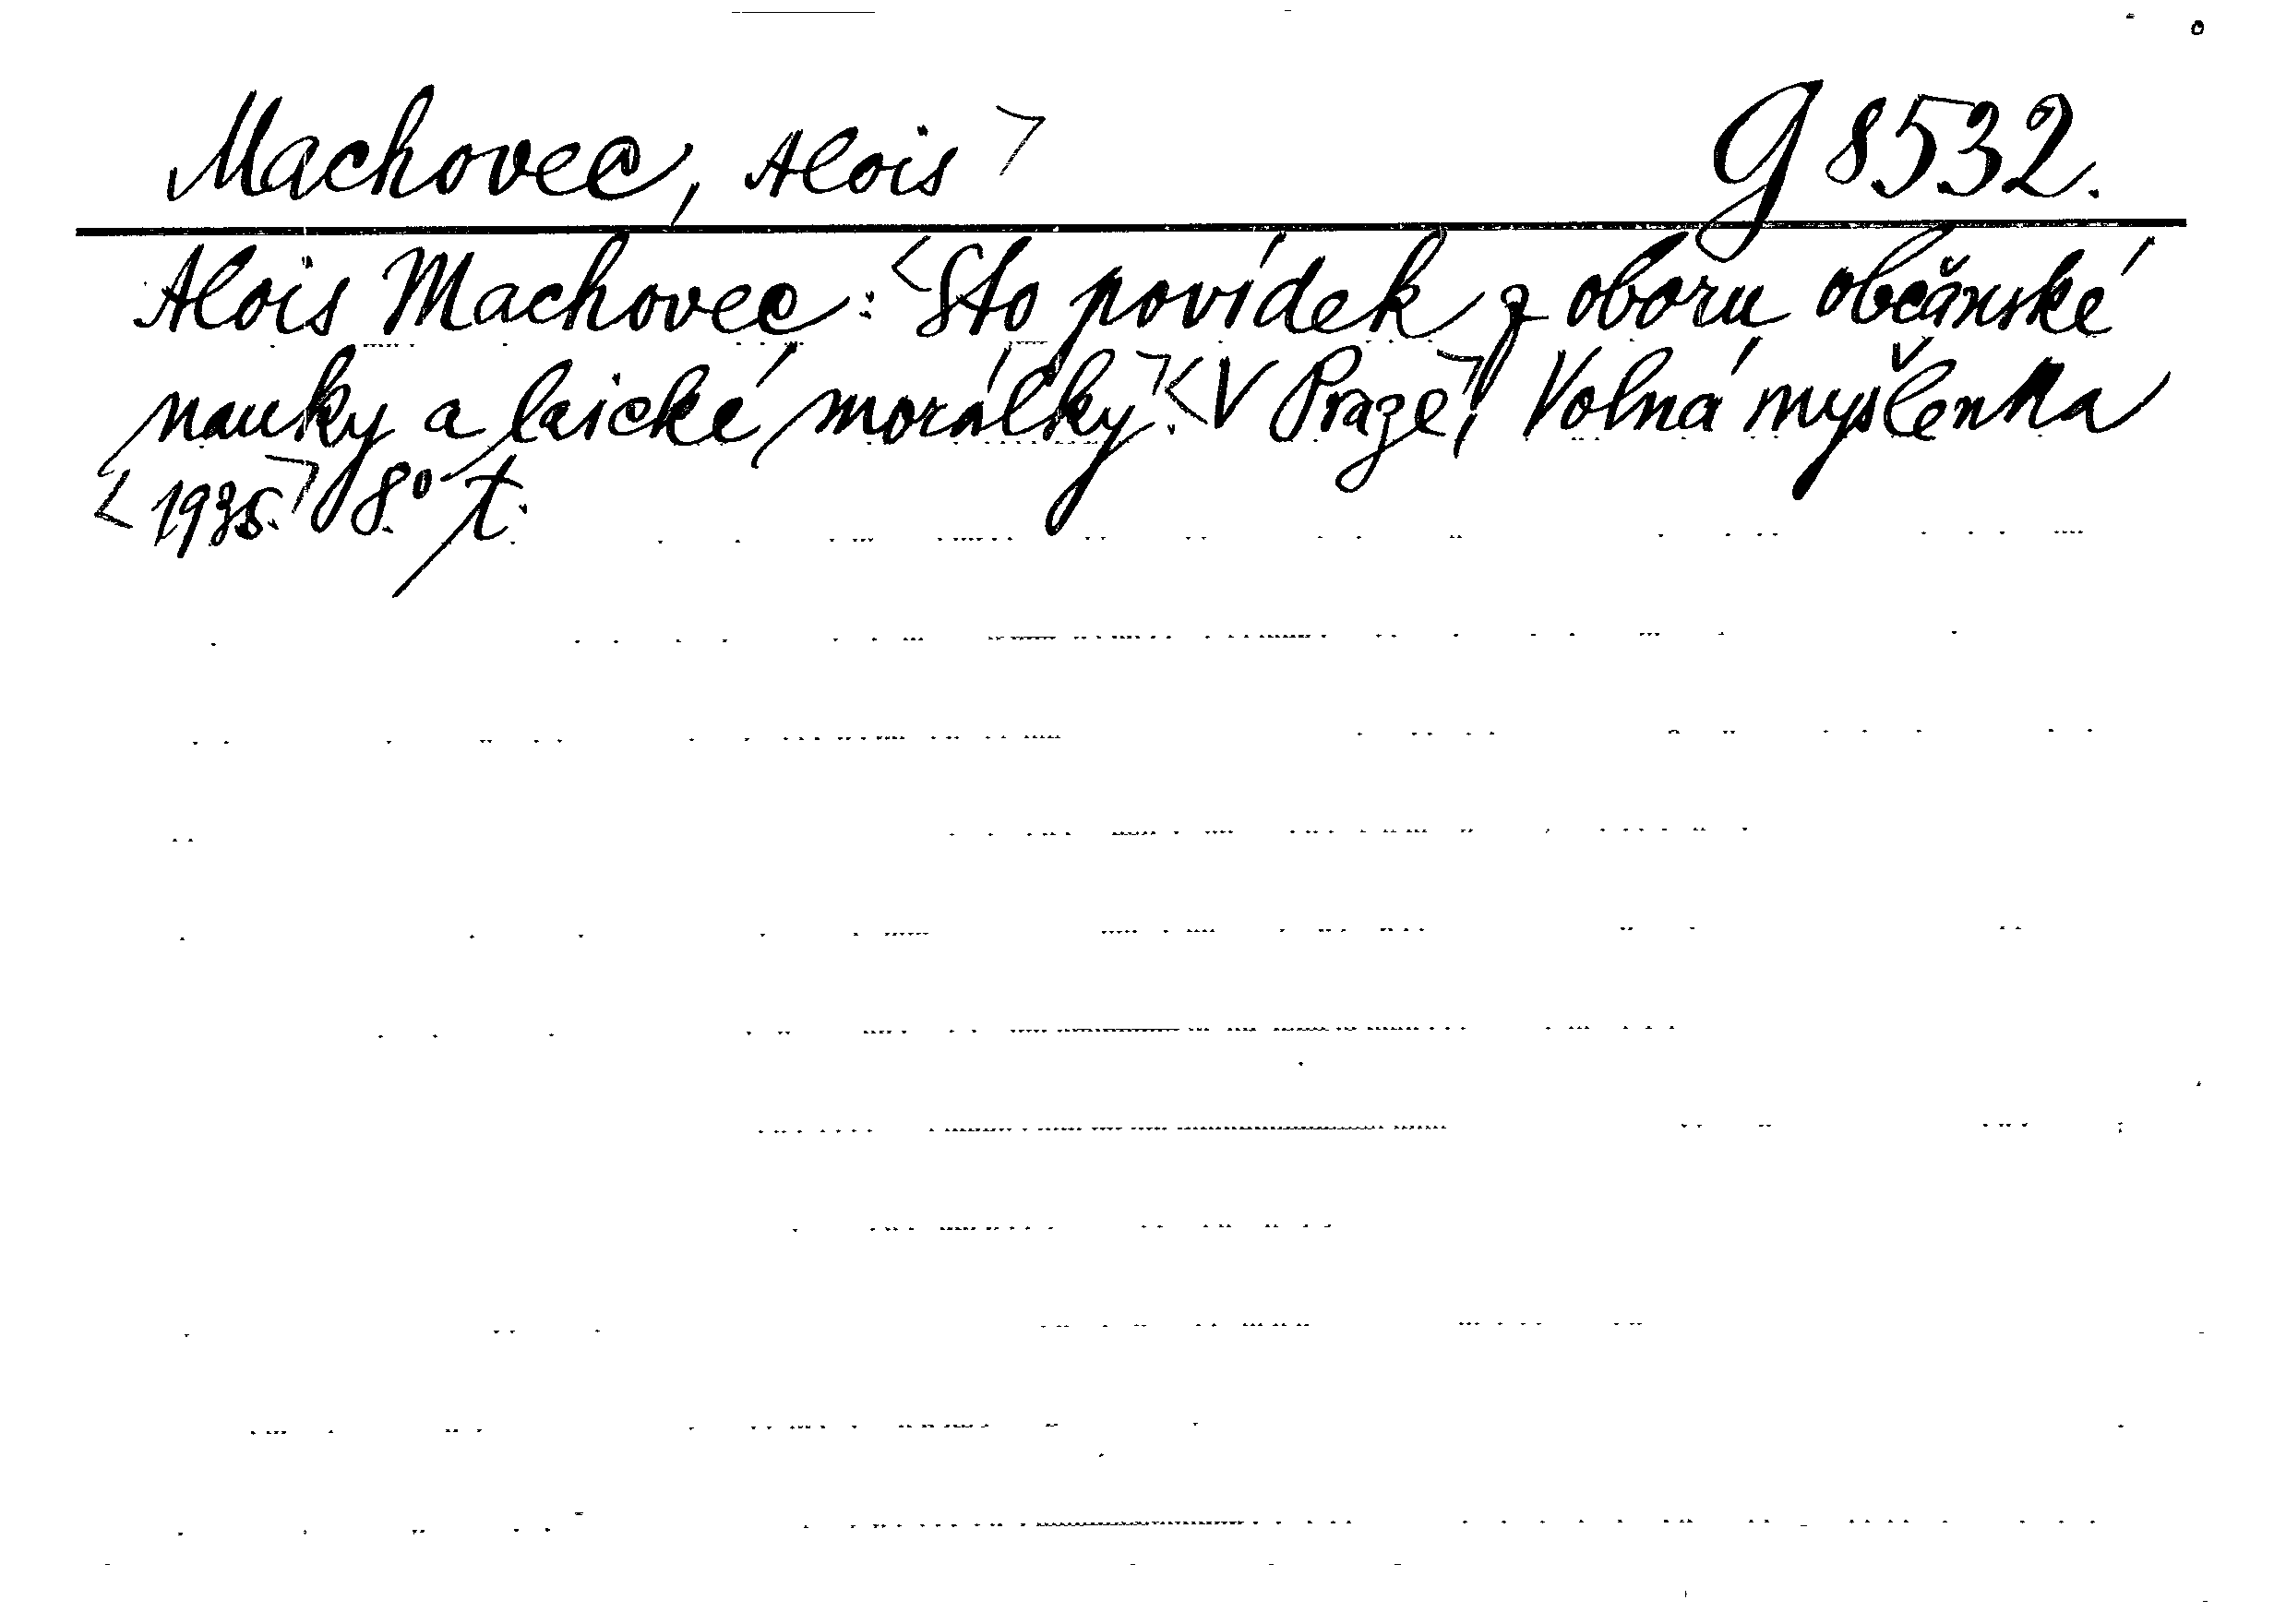 Machovec, Alois> G 8532.
Alois Machovec: <Sto povídek z oboru občanské
nauky a laické morálky.> <V Praze>, Volná myšlenka
<1935.> 8.° t.